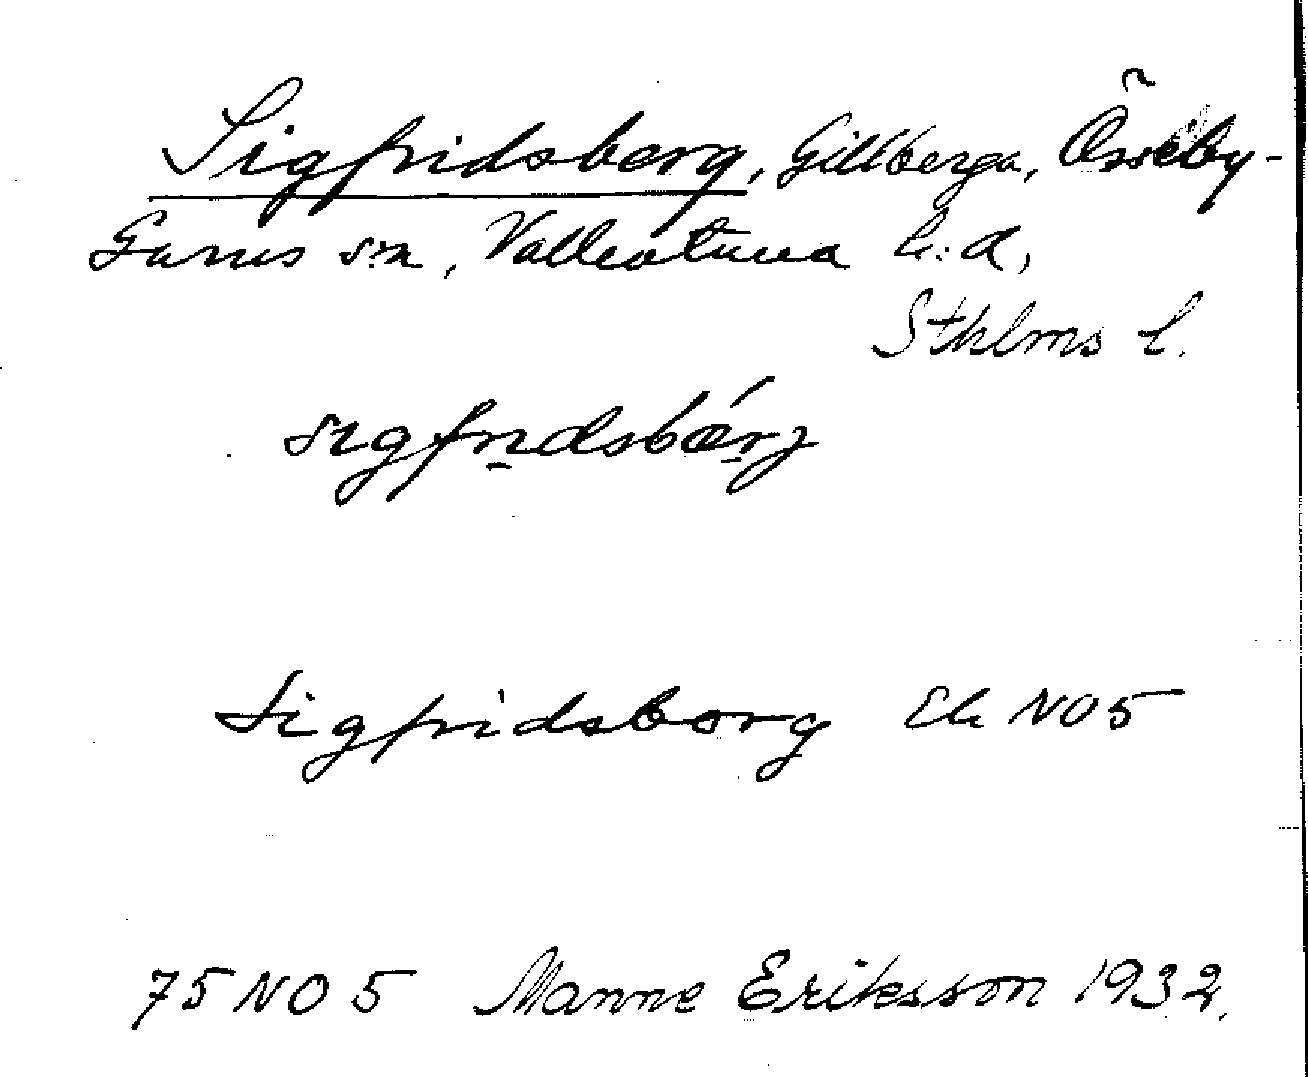 Sigfridsberg, Gillberga, Össeby-
Garns sn, Vallentuna h:d,
Sthlms l.
sɪgfrɪdsbǽrj
Sigfridsborg Ek NO5
75 NO 5 Manne Eriksson 1932.